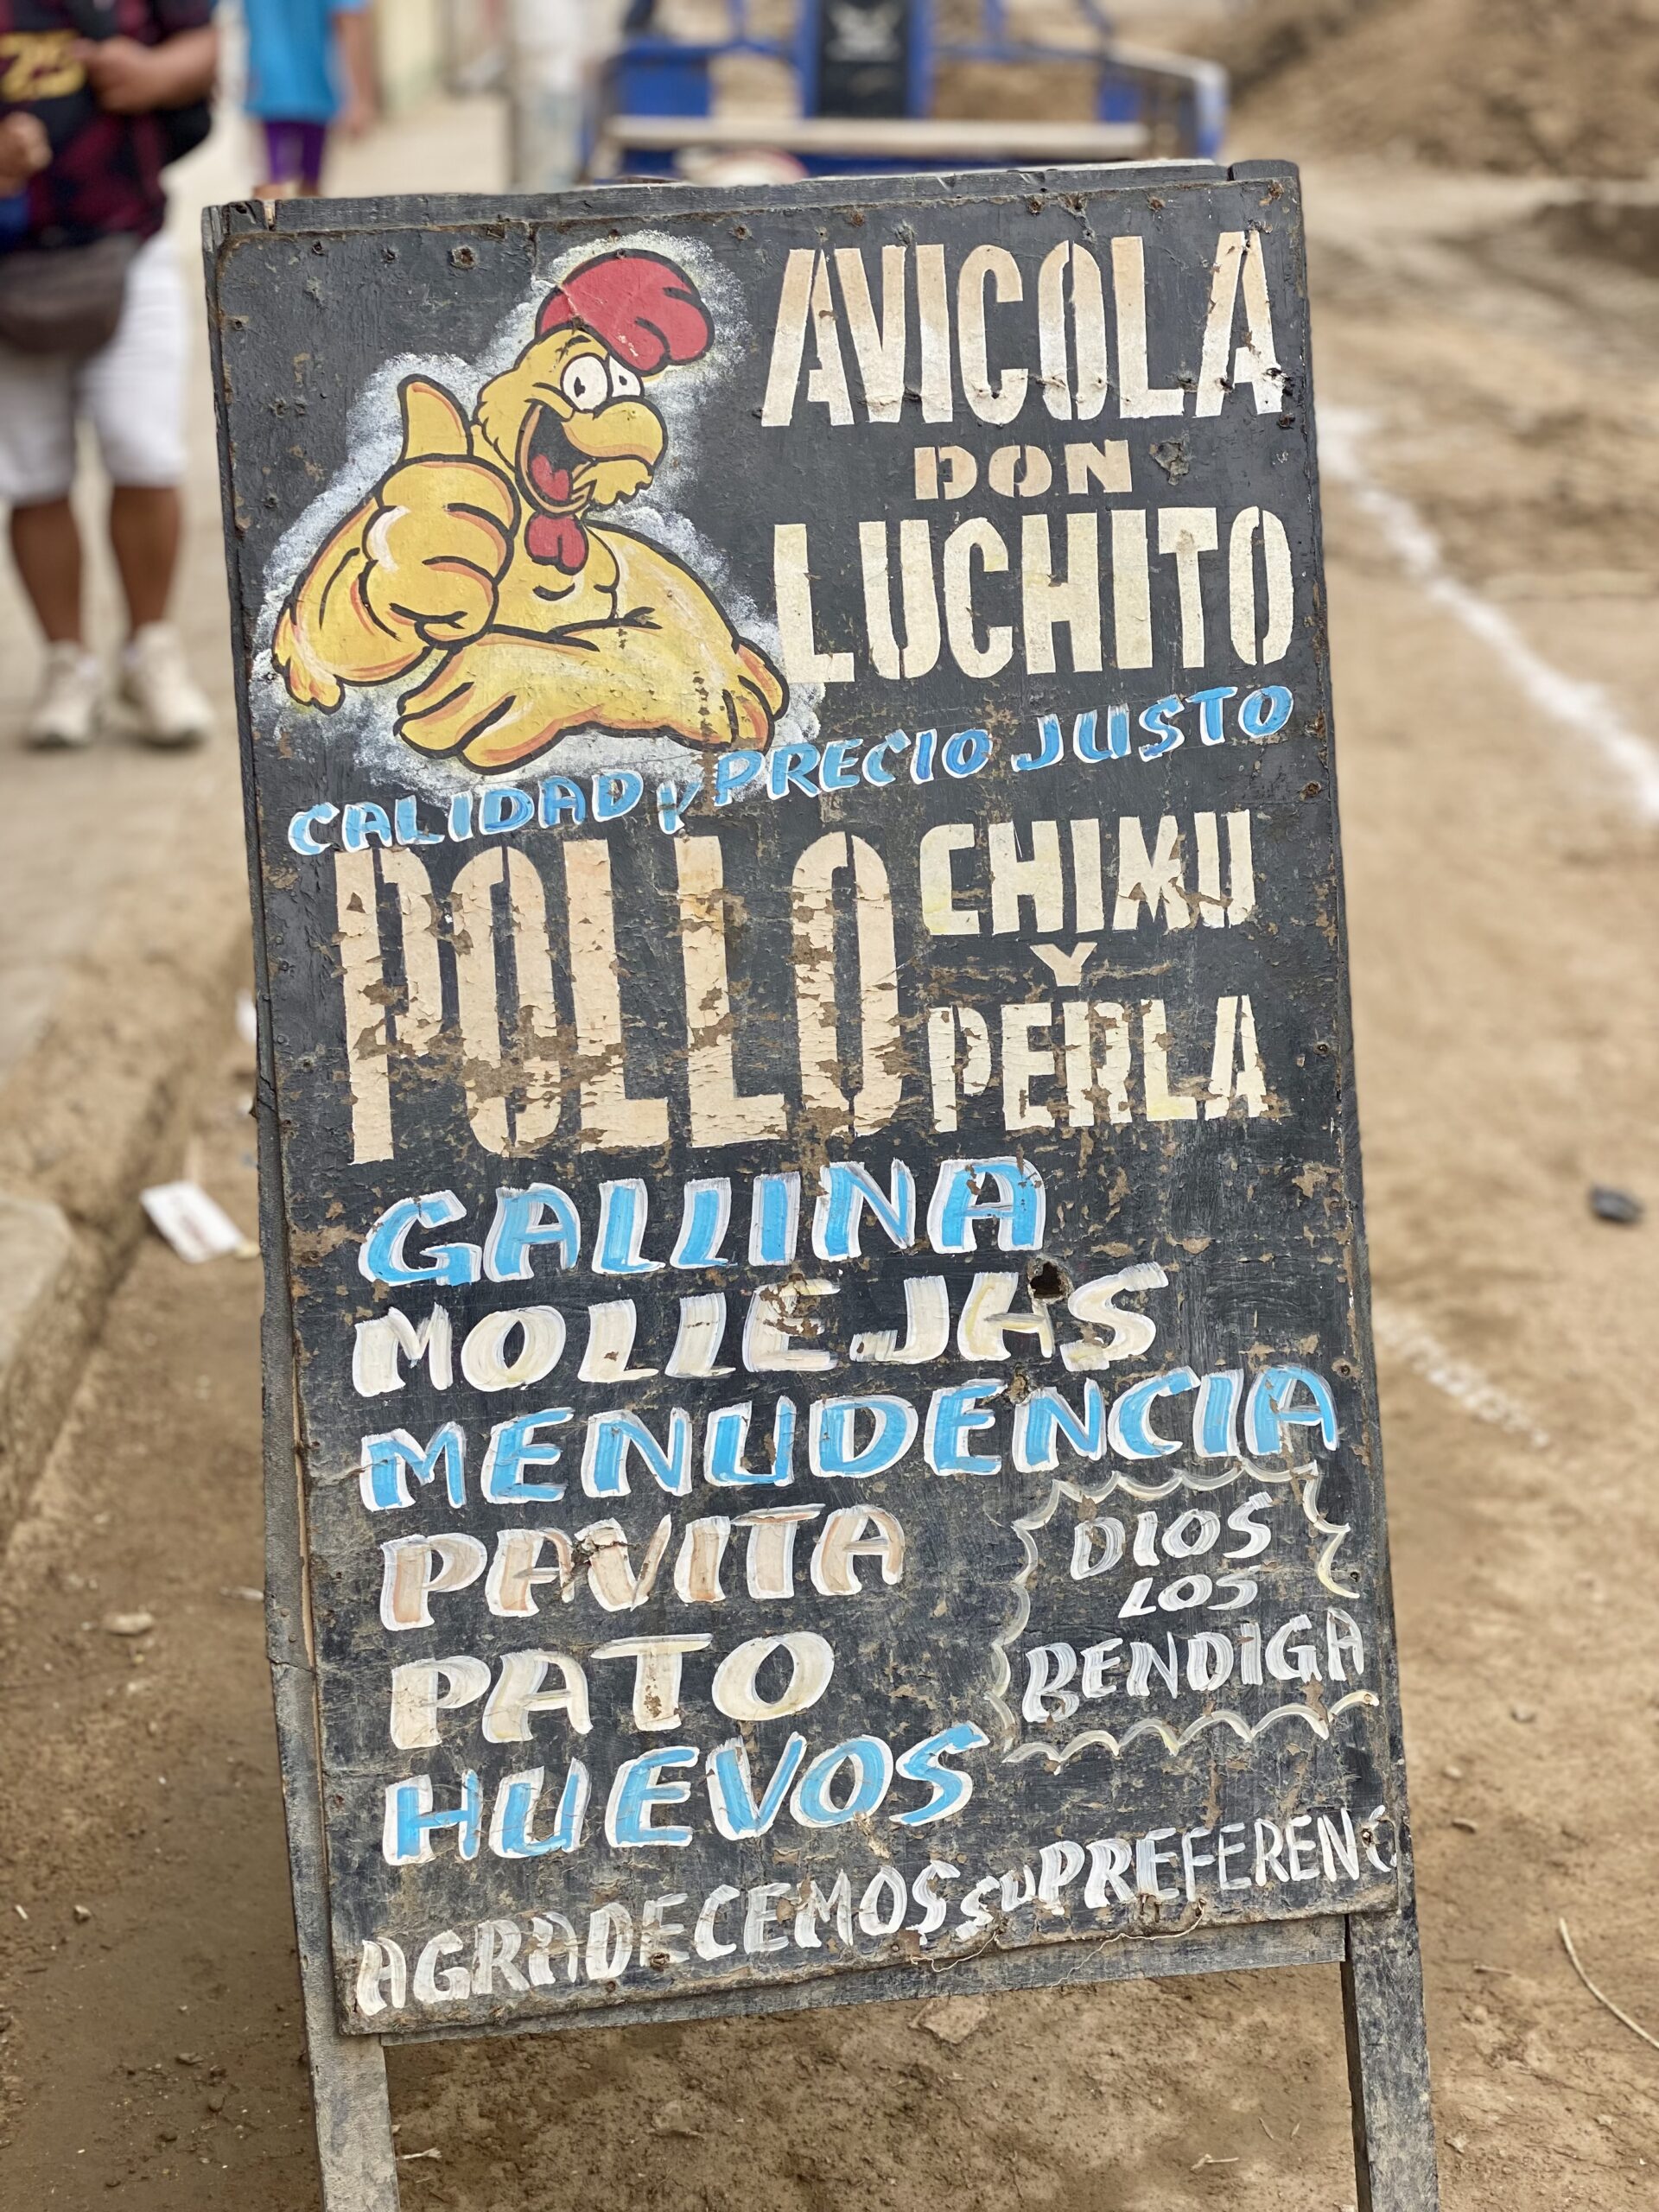 AVICOLA
DON
LUCHITO
CALIDAD Y PRECIO JUSTO
POLLO CHIMU
Y
PERLA
GALLINA
MOLLEJAS
MENUDENCIA
PAVITA
PATO
HUEVOS
DIOS
LOS
BENDIGA
AGRADECEMOS SU PREFERENC